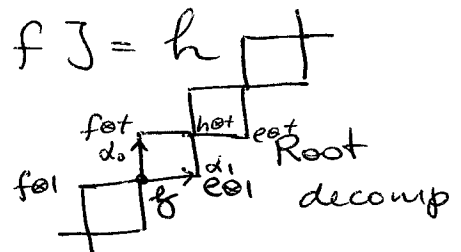 f ] = h
f⊗t
h⊗t
e⊗t
α₀
Root
f⊗1
α₁
e⊗1
decomp